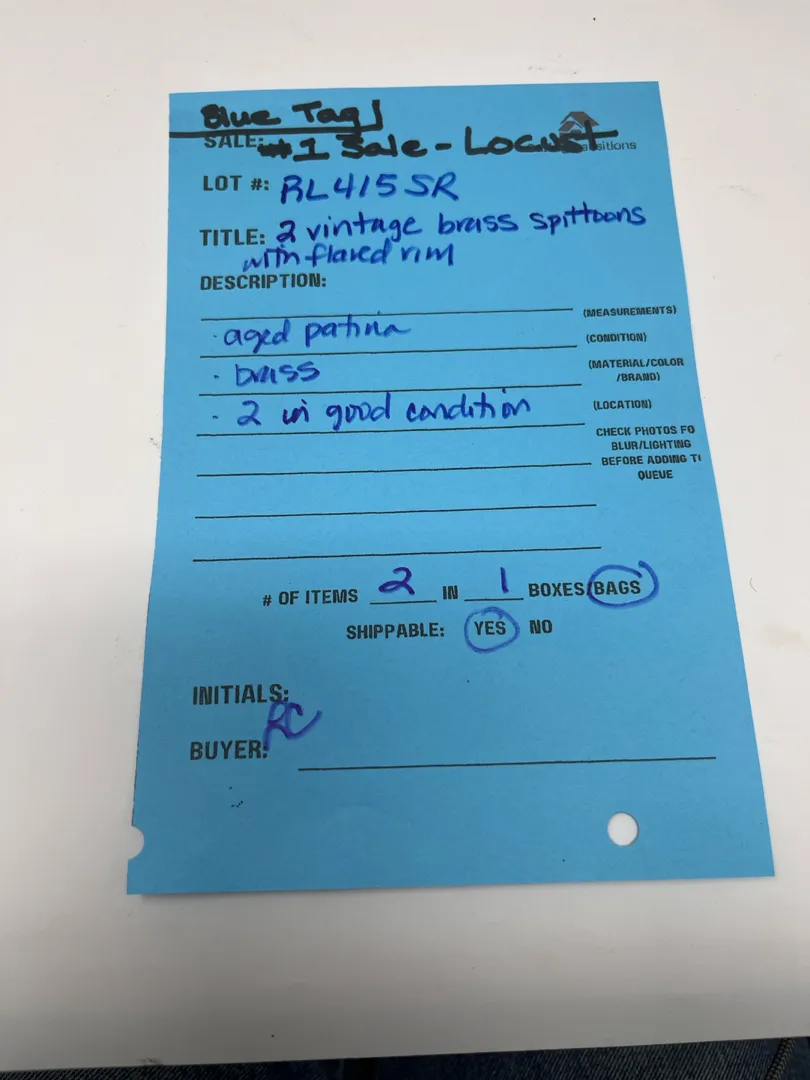 Blue Tag
SALE: #1 Sale - Locust
sitions
LOT #: RL415SR
TITLE: 2 vintage brass spittoons
with flared rim
DESCRIPTION:
(MEASUREMENTS)
· aged patina (CONDITION)
· brass (MATERIAL/COLOR
/BRAND)
· 2 in good condition (LOCATION)
CHECK PHOTOS FO
BLUR/LIGHTING
BEFORE ADDING T
QUEUE
# OF ITEMS 2 IN 1 BOXES/BAGS
SHIPPABLE: YES NO
INITIALS:
RC
BUYER: